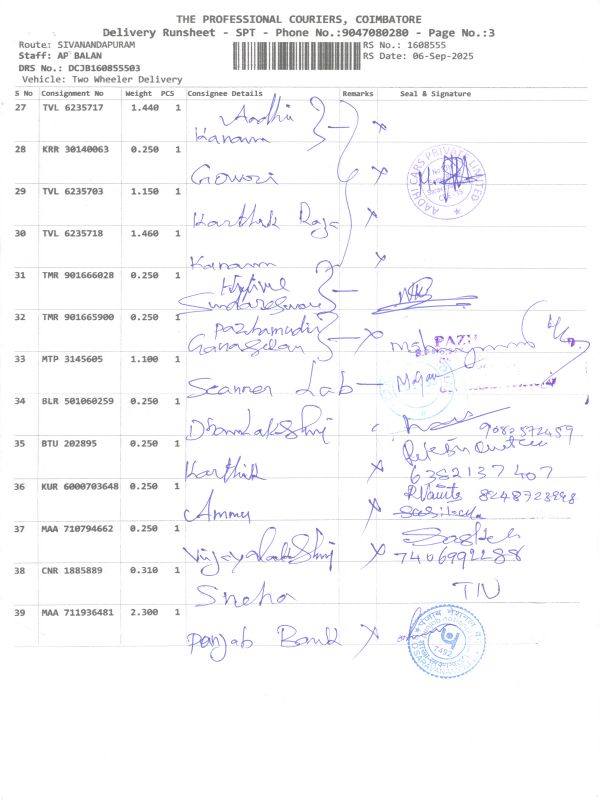 THE PROFESSIONAL COURIERS, COIMBATORE
Delivery Runsheet - SPT - Phone No.:9047080280 - Page No.:3
Route: SIVANANDAPURAM RS No.: 1608555
Staff: AP BALAN RS Date: 06-Sep-2025
DRS No.: DCJB160855503
Vehicle: Two Wheeler Delivery
S No Consignment No Weight PCS Consignee Details Remarks Seal & Signature
27 TVL 6235717 1.440 1 Aadhi
Kanann
28 KRR 30140063 0.250 1
Gowri
AADHI CARS PRIVATE LIMITED
29 TVL 6235703 1.150 1
Karthik Raja
30 TVL 6235718 1.460 1
Kanann
31 TMR 901666028 0.250 1
Sundareswari
32 TMR 901665900 0.250 1 Pazhamudir
PAZH
33 MTP 3145605 1.100 1
Scanner Lab
34 BLR 501060259 0.250 1
DhanaLakshmi 9080572459
35 BTU 202895 0.250 1
Karthik 6382137407
36 KUR 6000703648 0.250 1 8248728998
Ammu
37 MAA 710794662 0.250 1
Vijayalakshmi 7406992288
38 CNR 1885889 0.310 1
Sneha
39 MAA 711936481 2.300 1
Panjab Bank
7492